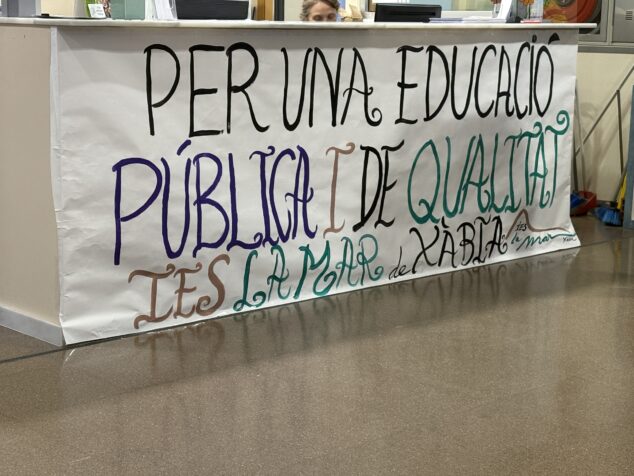 PER UNA EDUCACIÓ
PÚBLICA I DE QUALITAT
IES LA MAR de XÀBIA
IES
la mar
XÀBIA